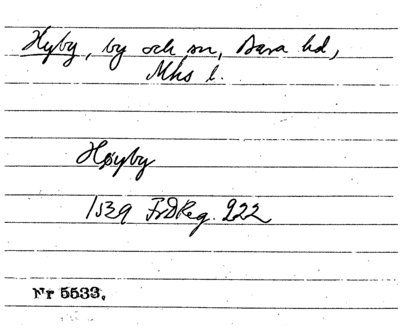 Hyby, by och sn, Bara hd,
Mhs l.
Høyby
1539 FrDReg. 222
Nr 5533.